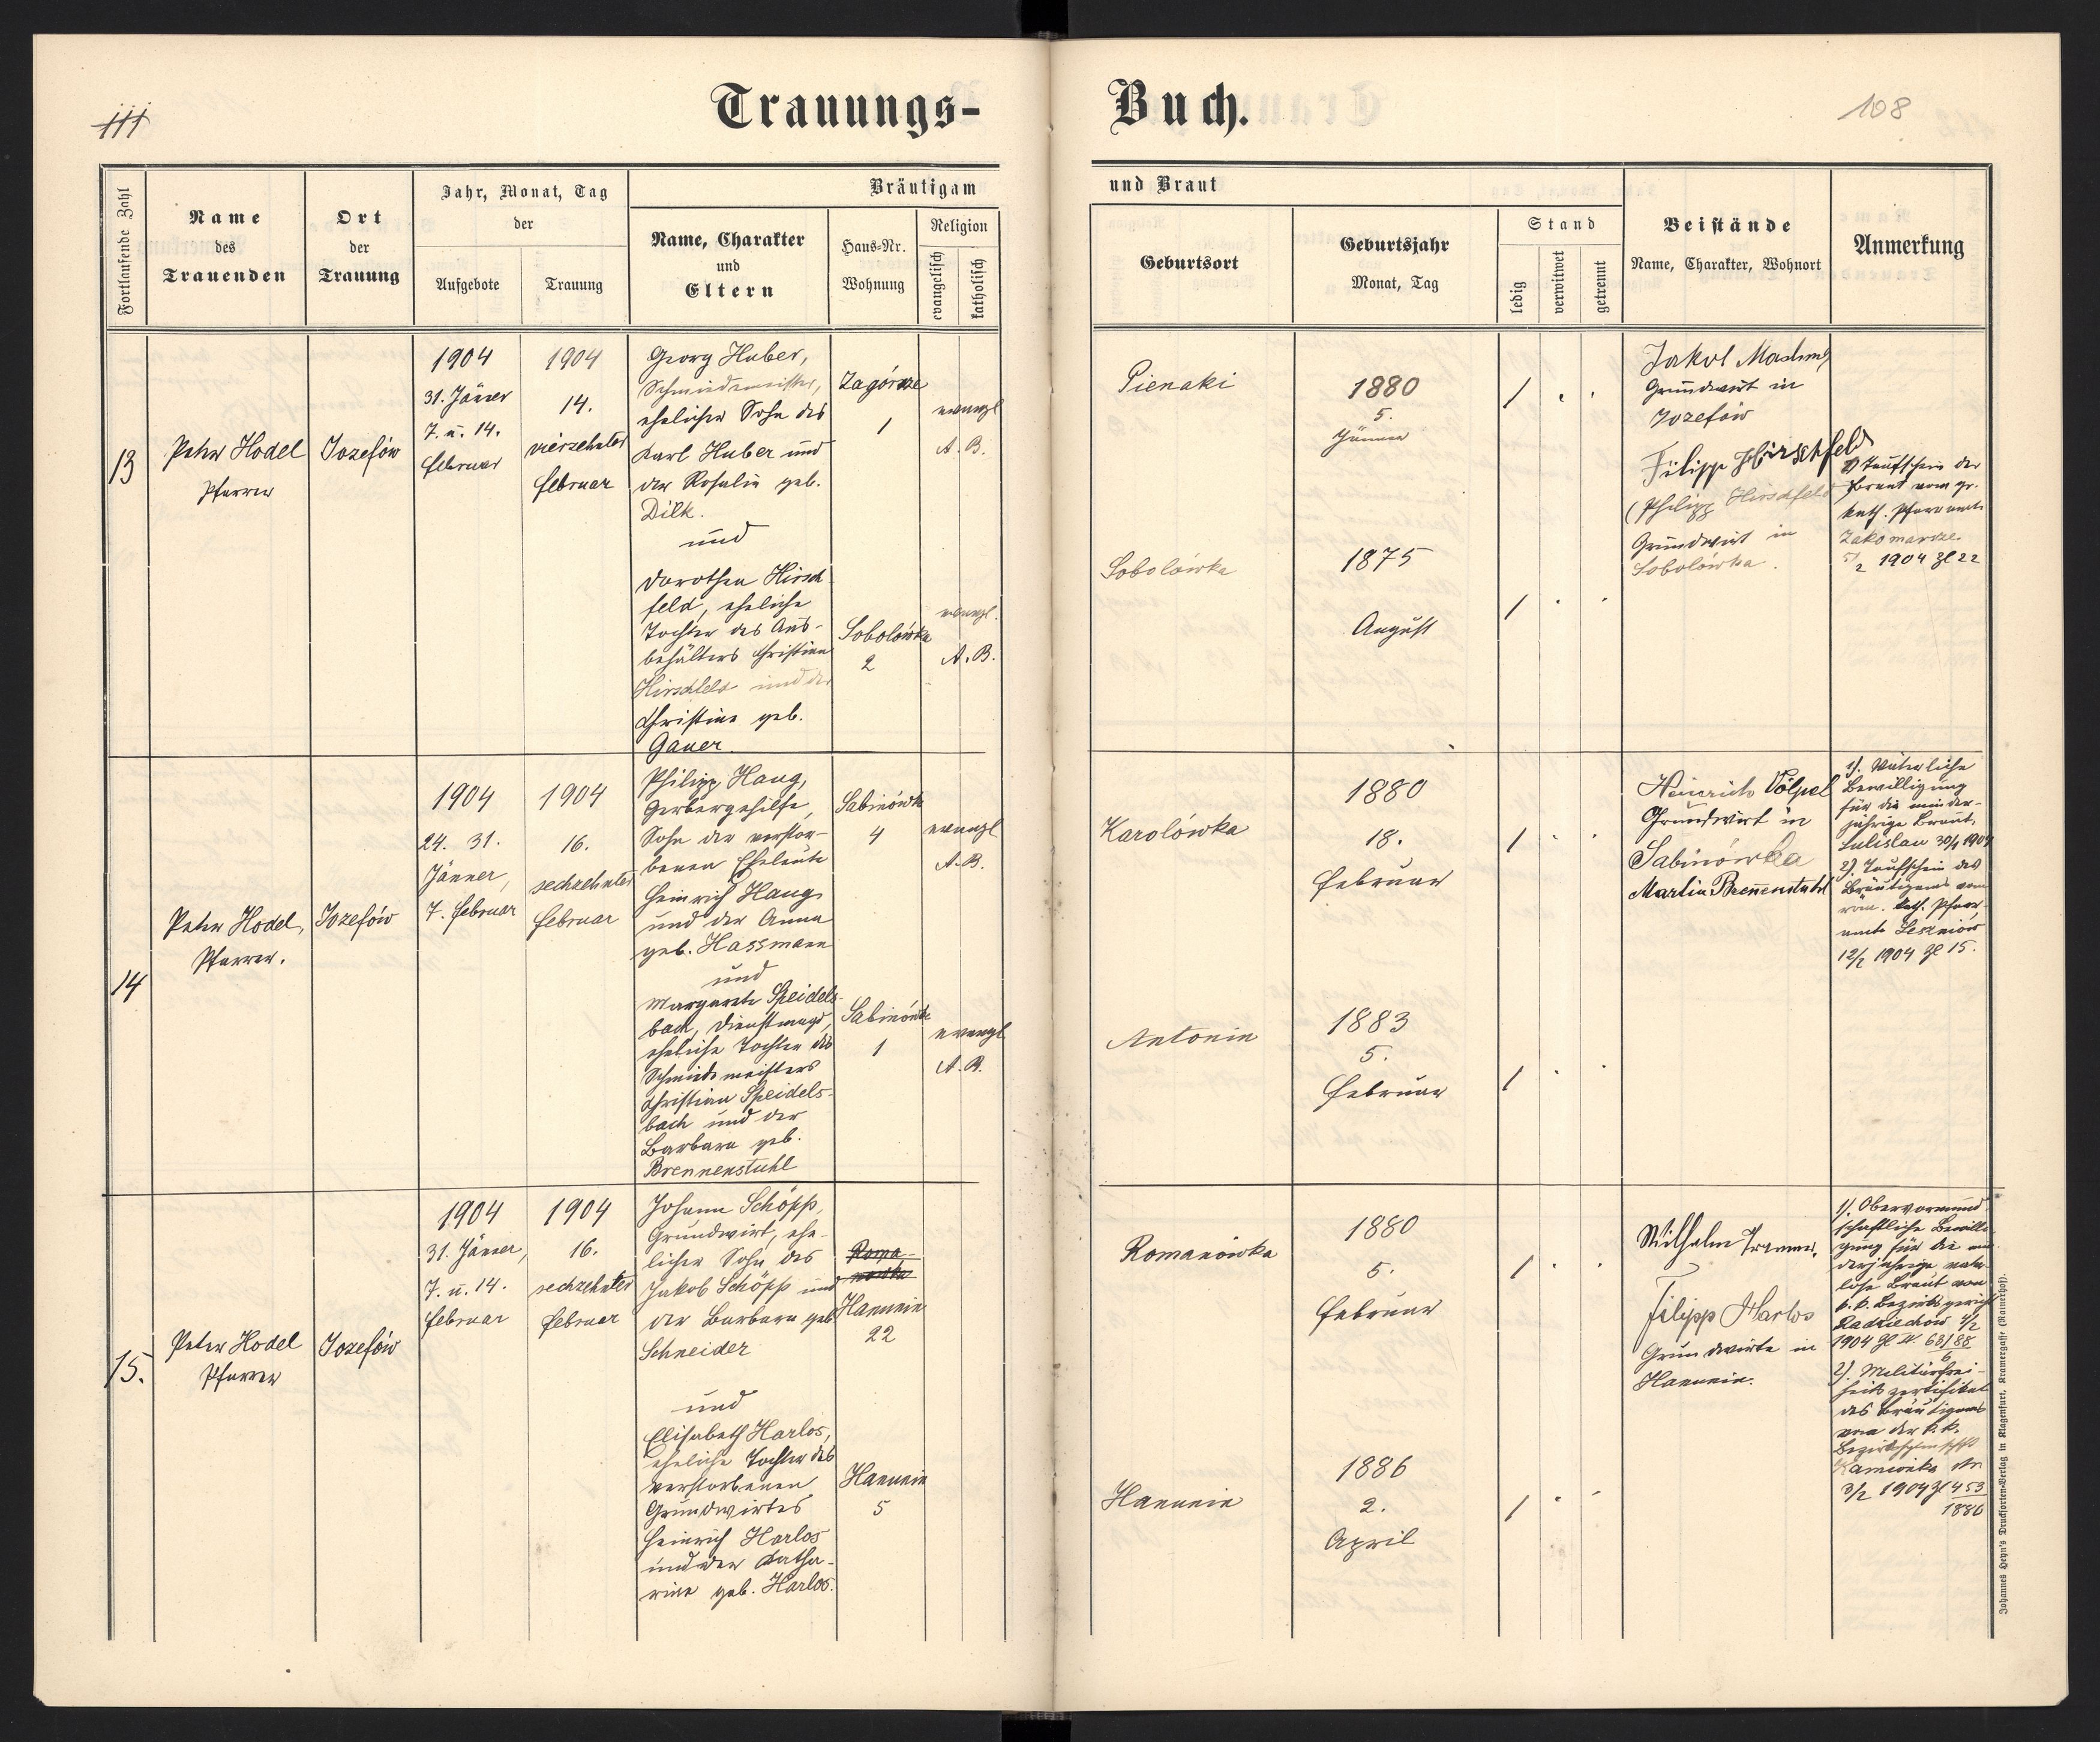 111
Trauungs-
Buch.
108
Fortlaufende Zahl
Name
des
Trauenden
Ort
der
Trauung
Jahr, Monat, Tag
der
Aufgebote
Trauung
Bräutigam
Name, Charakter
und
Eltern
Haus-Nr.
Wohnung
Religion
evangelisch
katholisch
und Braut
Geburtsort
Geburtsjahr
Monat, Tag
Stand
ledig
verwitwet
getrennt
Beistände
Name, Charakter, Wohnort
Anmerkung
13
Peter Hodel
Pfarrer
Jozefów
1904
31. Jänner
7. u. 14.
Februar
1904
14.
vierzehnter
Februar
Georg Huber,
Schmiedemeister,
ehelicher Sohn des
Karl Huber und
der Rosalie geb.
Dilk.
und
Dorothea Hirsch-
feld, eheliche
Tochter des Aus-
behälters Christian
Hirschfeld und der
Christine geb.
Gauer.
Zagórze
1
Sobolówka
2
evangl
A. B.
evangl.
A. B.
Pieniaki
Sobolówka
1880
5.
Jänner
1875
August
/
/
Jakob
Grundwirt in
Jozefów
Filipp Hirschfeld
(Philipp Hirschfeld)
Grundwirt in
Sobolówka.
1) Taufschein der
Braut vom gr.
kath. Pfarramte
Zakomarze
5/2 1904 Zl 22
14
Peter Hodel,
Pfarrer.
Jozefów
1904
24. 31.
Jänner,
7. Februar
1904
16.
sechzehnter
Februar
Philipp Haug,
Gerbergehilfe,
Sohn der verstor-
benen Eheleute
Heinrich Haug
und der Anna
geb. Hassmann
und
Margarete Speidels-
bach, Dienstmagd,
eheliche Tochter des
Schmiedemeisters
Christian Speidels-
bach und der
Barbara geb.
Brennenstuhl
Sabinówka
4
Sabinówka
1
evangl
A. B.
evangl
A. B.
Karolówka
Antonin
1880
18.
Februar
1883
5.
Februar
/
/
Heinrich Völpel
Grundwirt in
Sabinówka
Martin Brennenstuhl
1). Väterliche
Bewilligung
für die minder-
jährige Braut,
30/1 1904
2). Taufschein des
Bräutigams vom
röm. kath. Pfarr-
amte Leszniów
12/2 1904 Zl 15.
15.
Peter Hodel
Pfarrer
Jozefów
1904
31. Jänner,
7. u. 14.
Februar
1904
16.
sechzehnter
Februar
Johann Schöpp,
Grundwirt, ehe-
licher Sohn des
Jakob Schöpp und
der Barbara geb
Schneider
und
Elisabeth Harlos,
eheliche Tochter des
verstorbenen
Grundwirtes
Heinrich Harlos
und der Katha-
rine geb. Harlos.
Roma-
nówka
Hanunin
22
Hanunin
5
Romanówka
Hanunin
1880
5.
Februar
1886
2.
April
/
/
Wilhelm
Filipp Harlos
Grundwirte in
Hanunin.
1). Obervormund-
schaftliche Bewilli-
gung für die min-
derjährige vater-
lose Braut vom
k. k. Bezirksgericht
Radziechów
1904
2). Militärfrei-
heitszertifikat
des Bräutigams
von der k. k.
Bezirkshauptmschft
Kamionka str.
3/2 1904 Zl 453
1880
Johannes Heyn's Drucksorten-Verlag in Klagenfurt, Kramergasse (Ramerhof).